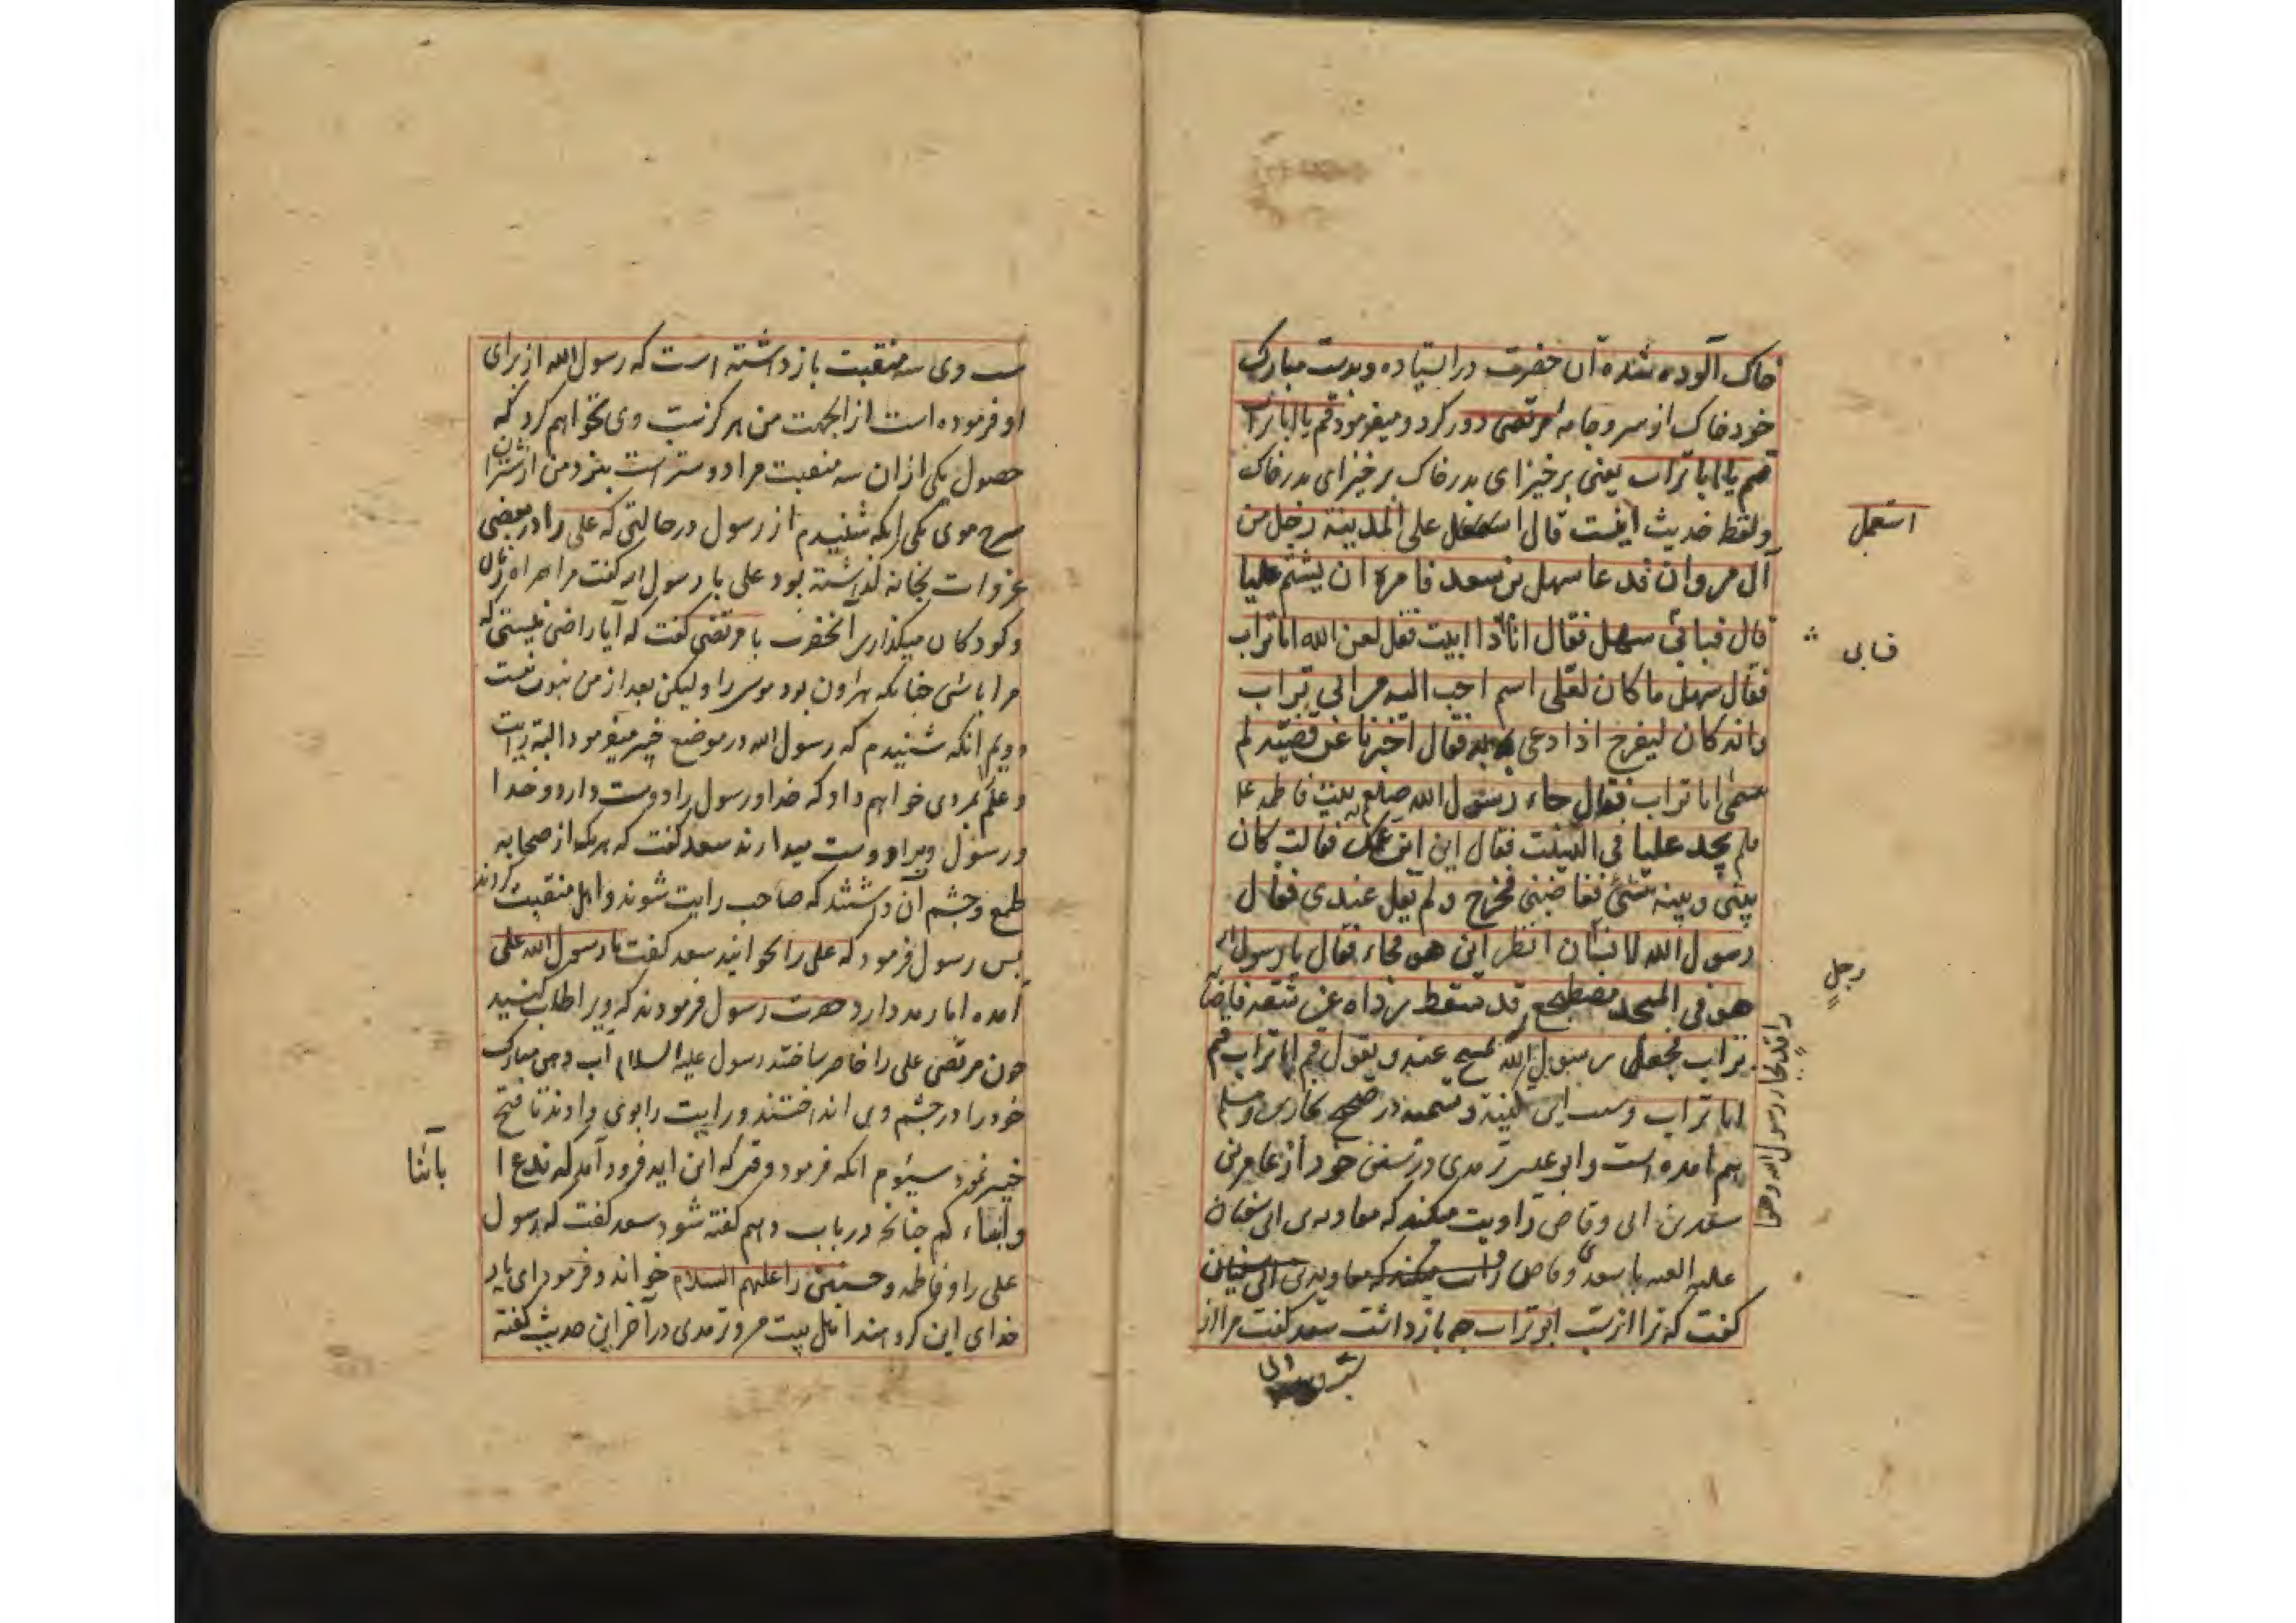 خاک آلوده شده آن حضرت در ایستاده و بدست مبارک
خود خاک از سر و جامه مرتضی دور کرد و میفرمود قم یا ابا تراب
قم یا ابا تراب یعنی برخیز ای پدر خاک برخیز ای پدر خاک
و لفظ حدیث اینست قال استعمل علی المدینة رجل من
آل مروان فدعا سهل بن سعد فامره ان یشتم علیا
قال فبائی سهل فقال اذا ابیت فقل لعن الله ابا تراب
فقال سهل ما کان لعلی اسم احب الیه من ابی تراب
وانه کان لیفرح اذا دعی به فقال اخبرنا عن قصته لم
سمی ابا تراب فقال جاء رسول الله صلعم بیت فاطمه
فلم یجد علیا فی البیت فقال این ابن عمک فقالت کان
بینی و بینه شئ فغاضبنی فخرج ولم یقل عندی فقال
رسول الله لانسان انظر این هو فجاء فقال یا رسول الله
هو فی المسجد مضطجع قد سقط رداه عن شقه فاصابه
تراب فجعل رسول الله یمسح عنه و یقول قم ابا تراب قم
ابا تراب و این کنیة و تسمیه در صحیح بخاری و مسلم
هم آمده است و ابو عیسی ترمدی در سنن خود از عامر بن
سعد بن ابی وقاص روایت میکند که معاویه بن ابی سفیان
علیه العنه با سعد وقاص
کفت که ترا از سب ابو تراب چه باز داشت سعد کفت مرا از
استعمل
فابی
رجل
سب وی
سب وی سه منقبت باز داشته است که رسول الله از برای
او فرموده است از اینجهت من هرکز سب وی نخواهم کرد که
حصول یکی از ان سه منقبت مرا دوستر است بنزد من از شتران
سرخ موی یکی انکه شنیدم از رسول در حالتی که علی را در بعضی
غزوات بخانه گذاشته بود علی با رسول الله کفت مرا همراه زنان
و کودکان میکذاری آنحضرت با مرتضی کفت که آیا راضی نیستی که
مرا باشی چنانکه هارون بود موسی را ولیکن بعد از من نبوت نیست
دویم انکه شنیدم که رسول الله در موضع خیبر میفرمود البته رایت
و علم بمردی خواهم داد که خدا و رسول را دوست دارد و خدا
و رسول ویرا دوست میدارند سعد کفت که هریک از صحابه
طمع و چشم آن داشتند که صاحب رایت شوند و اهل منقبت کردند
پس رسول فرمود که علی را بخوانید سعد کفت یا رسول الله علی
آمده اما رمد دارد حضرت رسول فرمودند که ویرا طلب کنید
چون مرتضی علی را حاضر ساختند رسول علیه السلام آب دهن مبارک
خود را در چشم وی انداختند و رایت را بوی دادند تا فتح
خیبر نمود سیئوم انکه فرمود وقتی که این ایه فرود آمد که ندع ا
وابناء کم چنانچه در باب دهم کفته شود سعد کفت که رسول
علی را و فاطمه و حسنین را علیهم السلام خواند و فرمود ای بار
خدای این کروه اهل بیت من و ترمدی در آخر این حدیث کفته